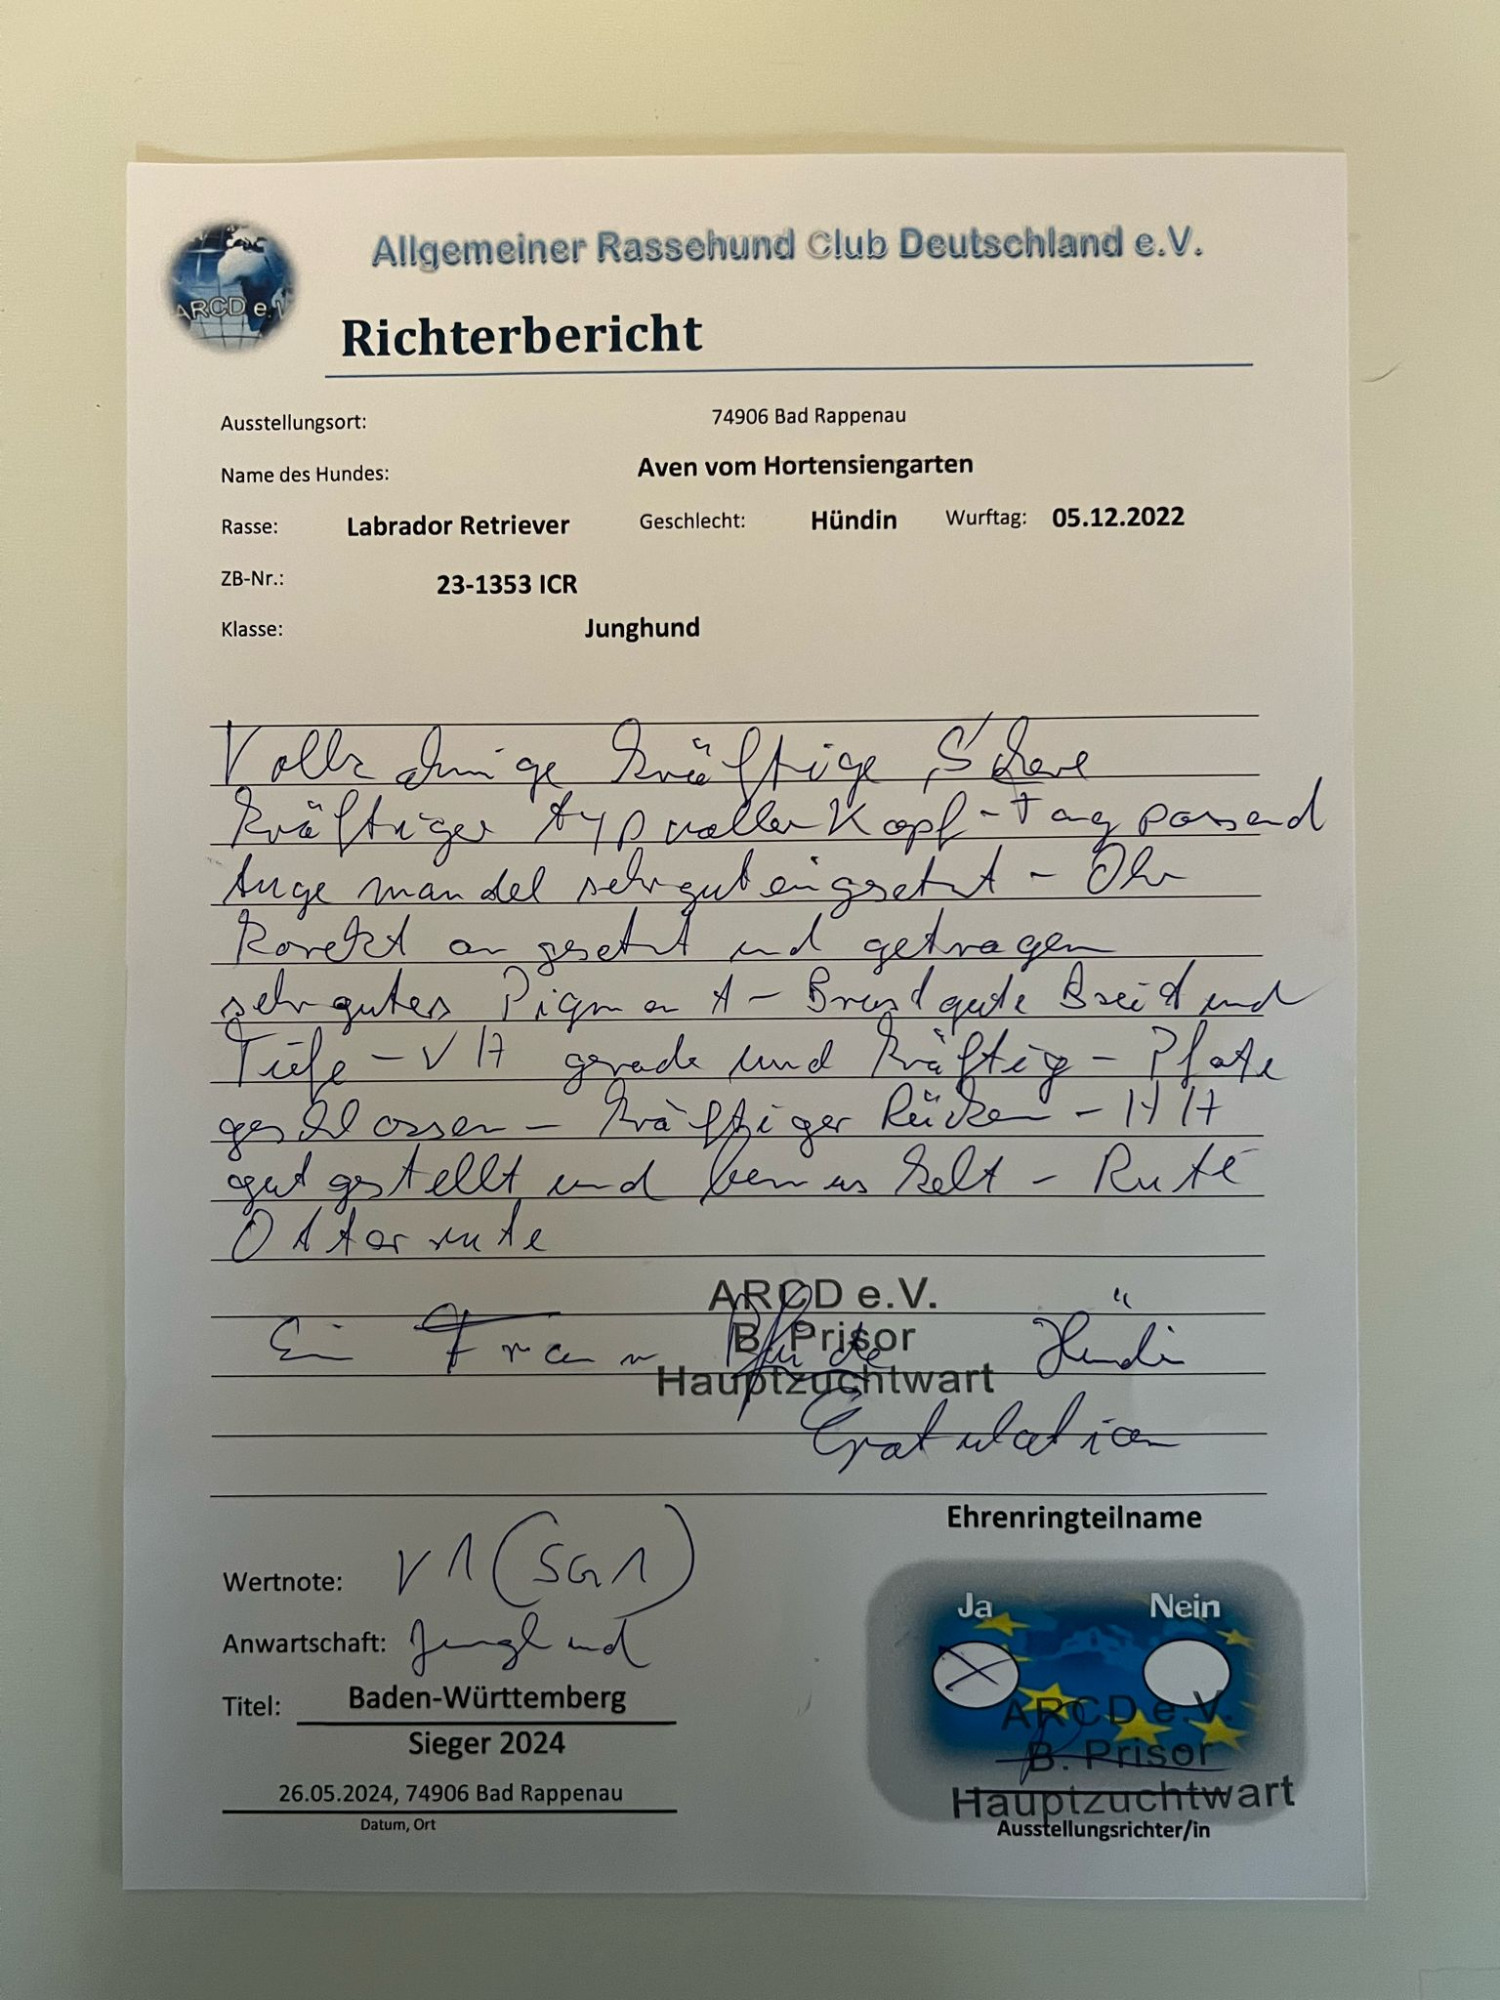 ARCD e.V
Allgemeiner Rassehund Club Deutschland e.V.
Richterbericht
Ausstellungsort: 74906 Bad Rappenau
Name des Hundes: Aven vom Hortensiengarten
Rasse: Labrador Retriever Geschlecht: Hündin Wurftag: 05.12.2022
ZB-Nr.: 23-1353 ICR
Klasse: Junghund
Vollzahnige kräftige Schere
kräftiger typvoller Kopf - Fang passend
Auge mandel sehr gut eingesetzt - Ohr
korekt angesetzt und getragen
sehr gutes Pigment - Brust gute Breit und
Tiefe - VH gerade und kräftig - Pfote
geschlossen - kräftiger Rücken - HH
gut gestellt und bemuskelt - Rute
Otterrute
ARCD e.V.
B. Prisor
Ein Hündin
Hauptzuchtwart
Gratulation
Ehrenringteilname
Wertnote: V1 (SG1)
Ja Nein
Anwartschaft: Junghund
Titel: Baden-Württemberg
Sieger 2024
ARCD e.V.
B. Prisor
Hauptzuchtwart
26.05.2024, 74906 Bad Rappenau
Datum, Ort
Ausstellungsrichter/in